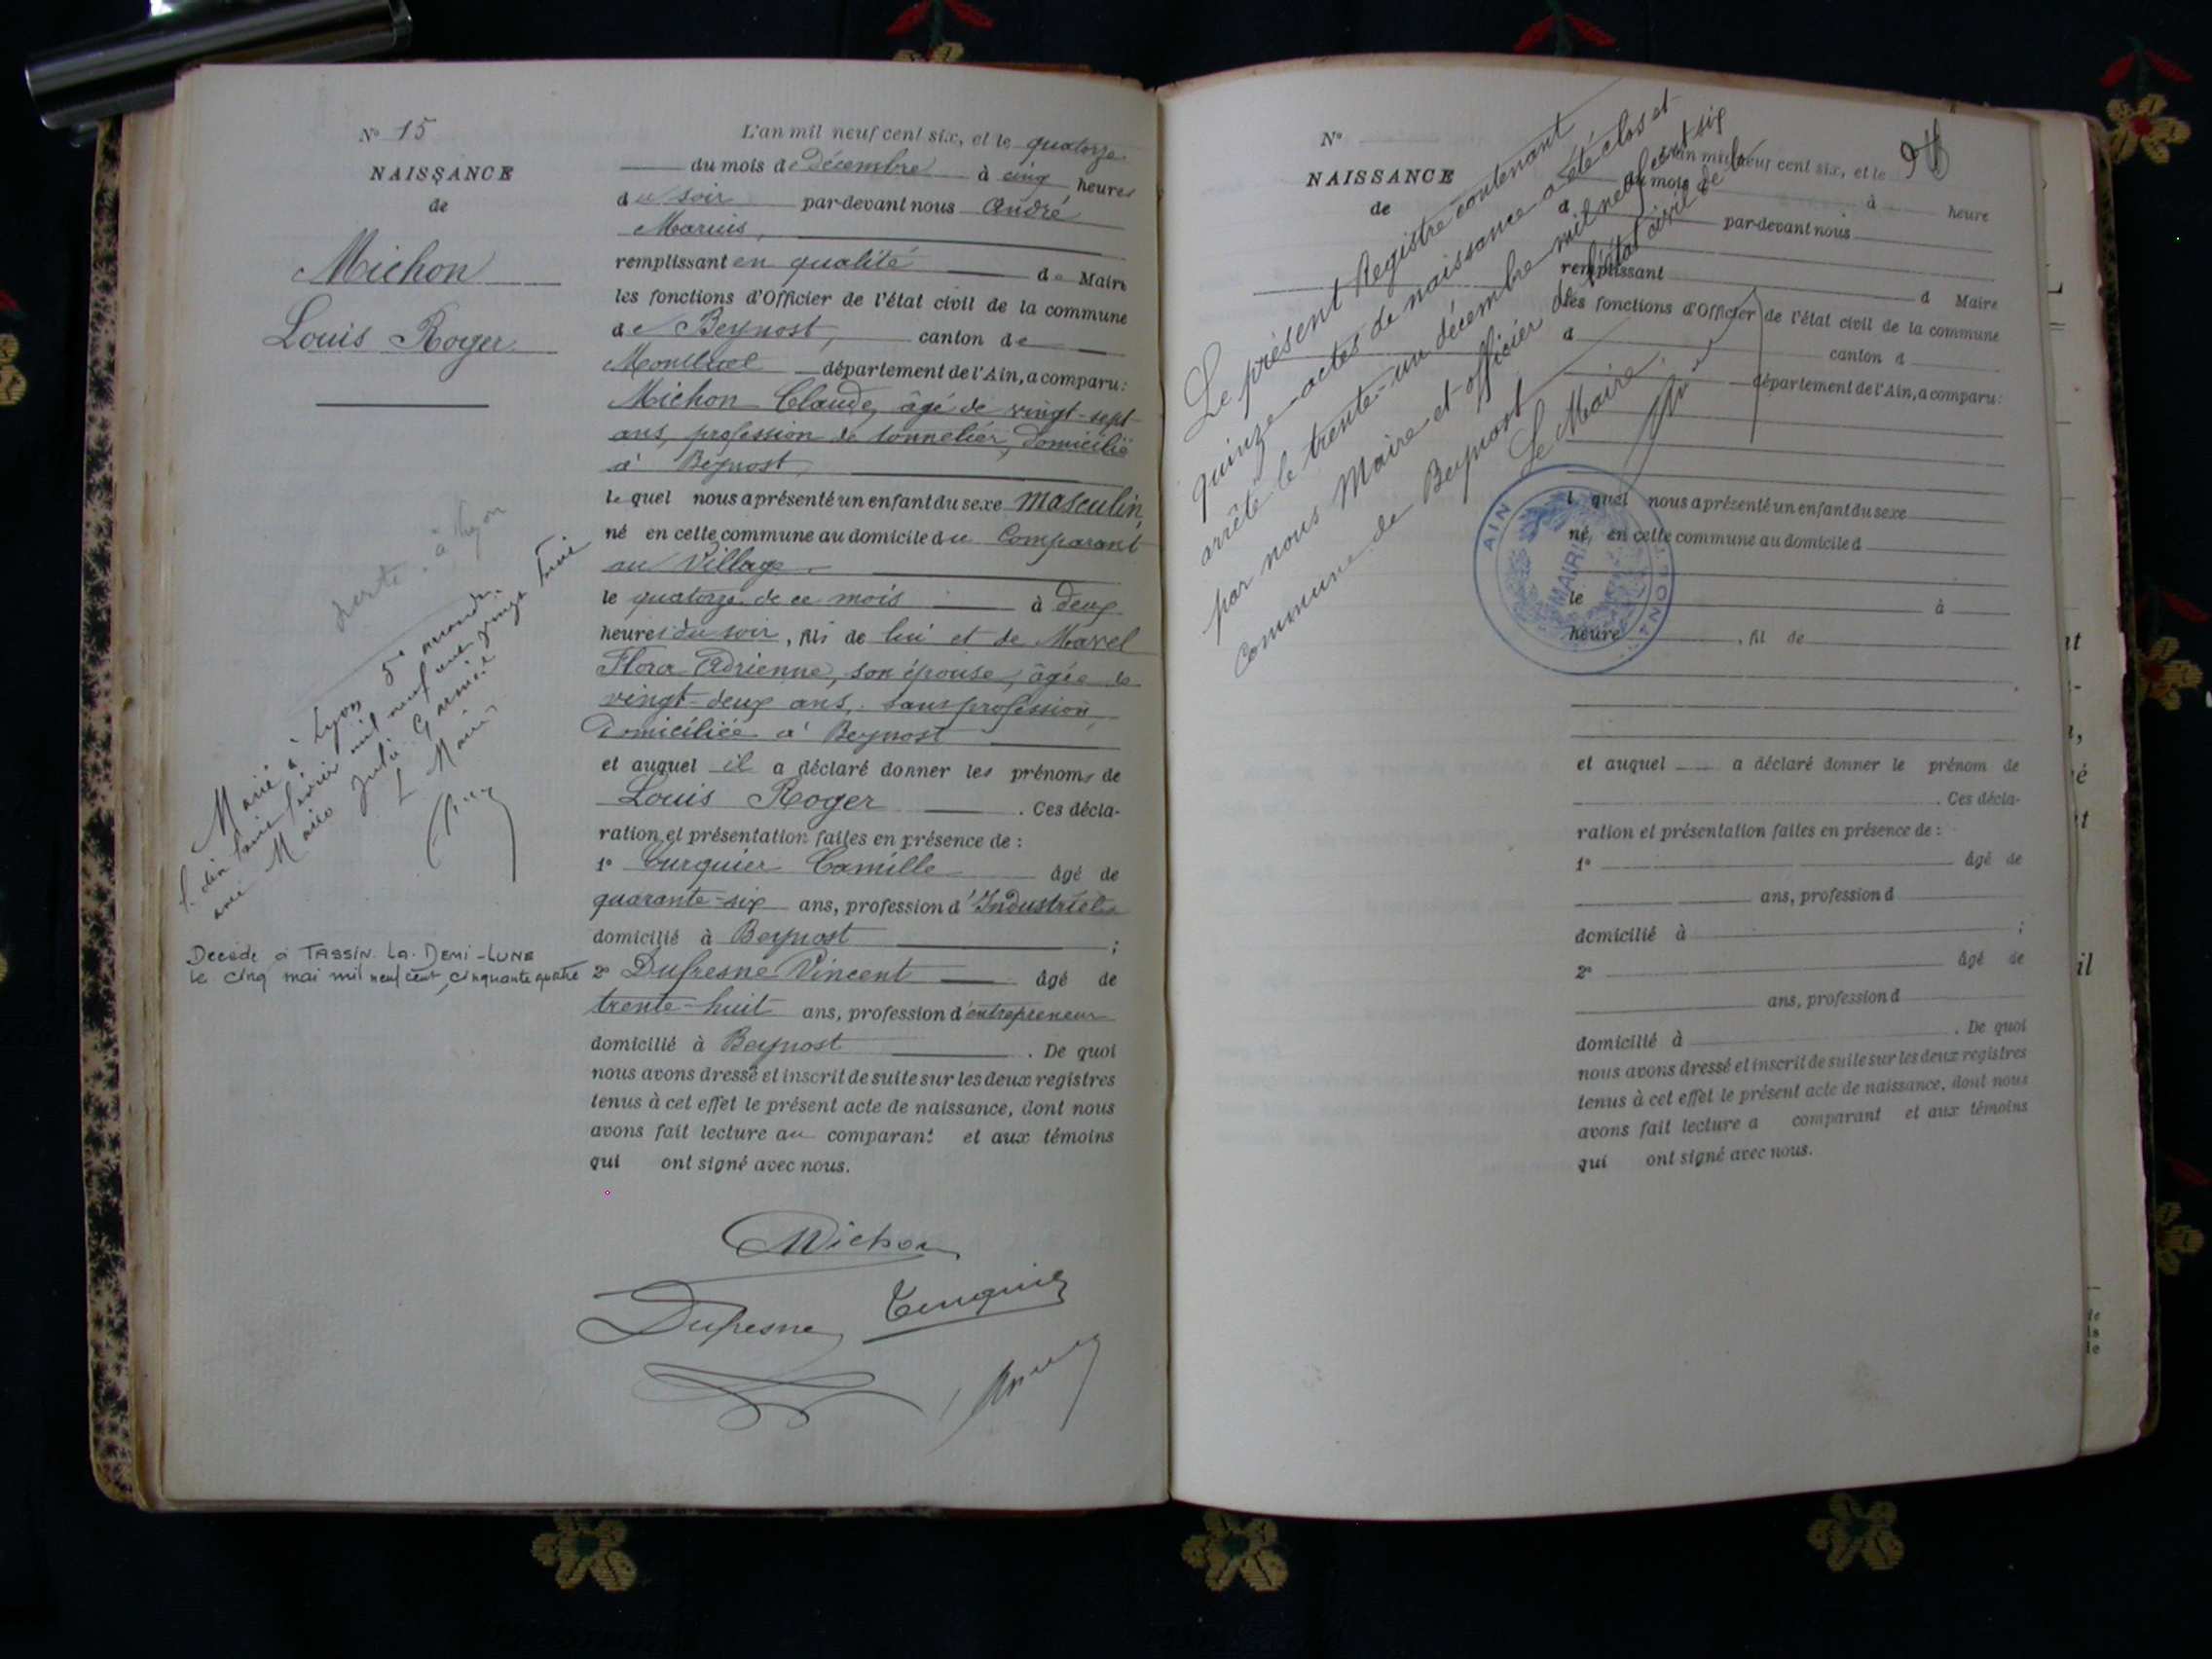 N° 15
NAISSANCE
de
Michon
Louis Roger
à Lyon
Marié à Lyon 5e
février mil neuf cent vingt huit
avec Marie Julie
Le Maire
Décédé à TASSIN-LA-DEMI-LUNE
le cinq mai mil neuf cent cinquante quatre
L'an mil neuf cent six, et le quatorze
du mois de Décembre à cinq heures
du soir par-devant nous André
Marius,
remplissant en qualité de Maire
les fonctions d'Officier de l'état civil de la commune
de Beynost, canton de
Montluel département de l'Ain, a comparu:
Michon Claude, âgé de vingt-sept
ans, profession de tonnelier, domicilié
à Beynost,
lequel nous a présenté un enfant du sexe masculin,
né en cette commune au domicile du Comparant
au Village
le quatorze de ce mois à deux
heures du soir, fils de lui et de Marel
Flora Adrienne, son épouse, âgée de
vingt-deux ans, sans profession,
domiciliée à Beynost
et auquel il a déclaré donner les prénoms de
Louis Roger. Ces décla-
ration et présentation faites en présence de :
1° Turquier Camille âgé de
quarante-six ans, profession d'Industriel
domicilié à Beynost ;
2° Dufresne Vincent âgé de
trente-huit ans, profession d'entrepreneur
domicilié à Beynost. De quoi
nous avons dressé et inscrit de suite sur les deux registres
tenus à cet effet le présent acte de naissance, dont nous
avons fait lecture au comparant et aux témoins
qui ont signé avec nous.
Michon
Dufresne Turquier
N°
NAISSANCE
de
Le présent Registre contenant
quinze actes de naissance a été clos et
arrêté le trente-un décembre mil neuf cent six
par nous Maire et officier de l'état civil de la
Commune de Beynost
Le Maire.
AIN
MAIRIE
L'an mil neuf cent six, et le
du mois à heure
d par-devant nous
remplissant d Maire
les fonctions d'Officier de l'état civil de la commune
d canton d
département de l'Ain, a comparu:
l quel nous a présenté un enfant du sexe
né en cette commune au domicile d
le à
heure , fil de
et auquel a déclaré donner le prénom de
. Ces décla-
ration et présentation faites en présence de :
1° âgé de
ans, profession d
domicilié à ;
2° âgé de
ans, profession d
domicilié à . De quoi
nous avons dressé et inscrit de suite sur les deux registres
tenus à cet effet le présent acte de naissance, dont nous
avons fait lecture a comparant et aux témoins
qui ont signé avec nous.